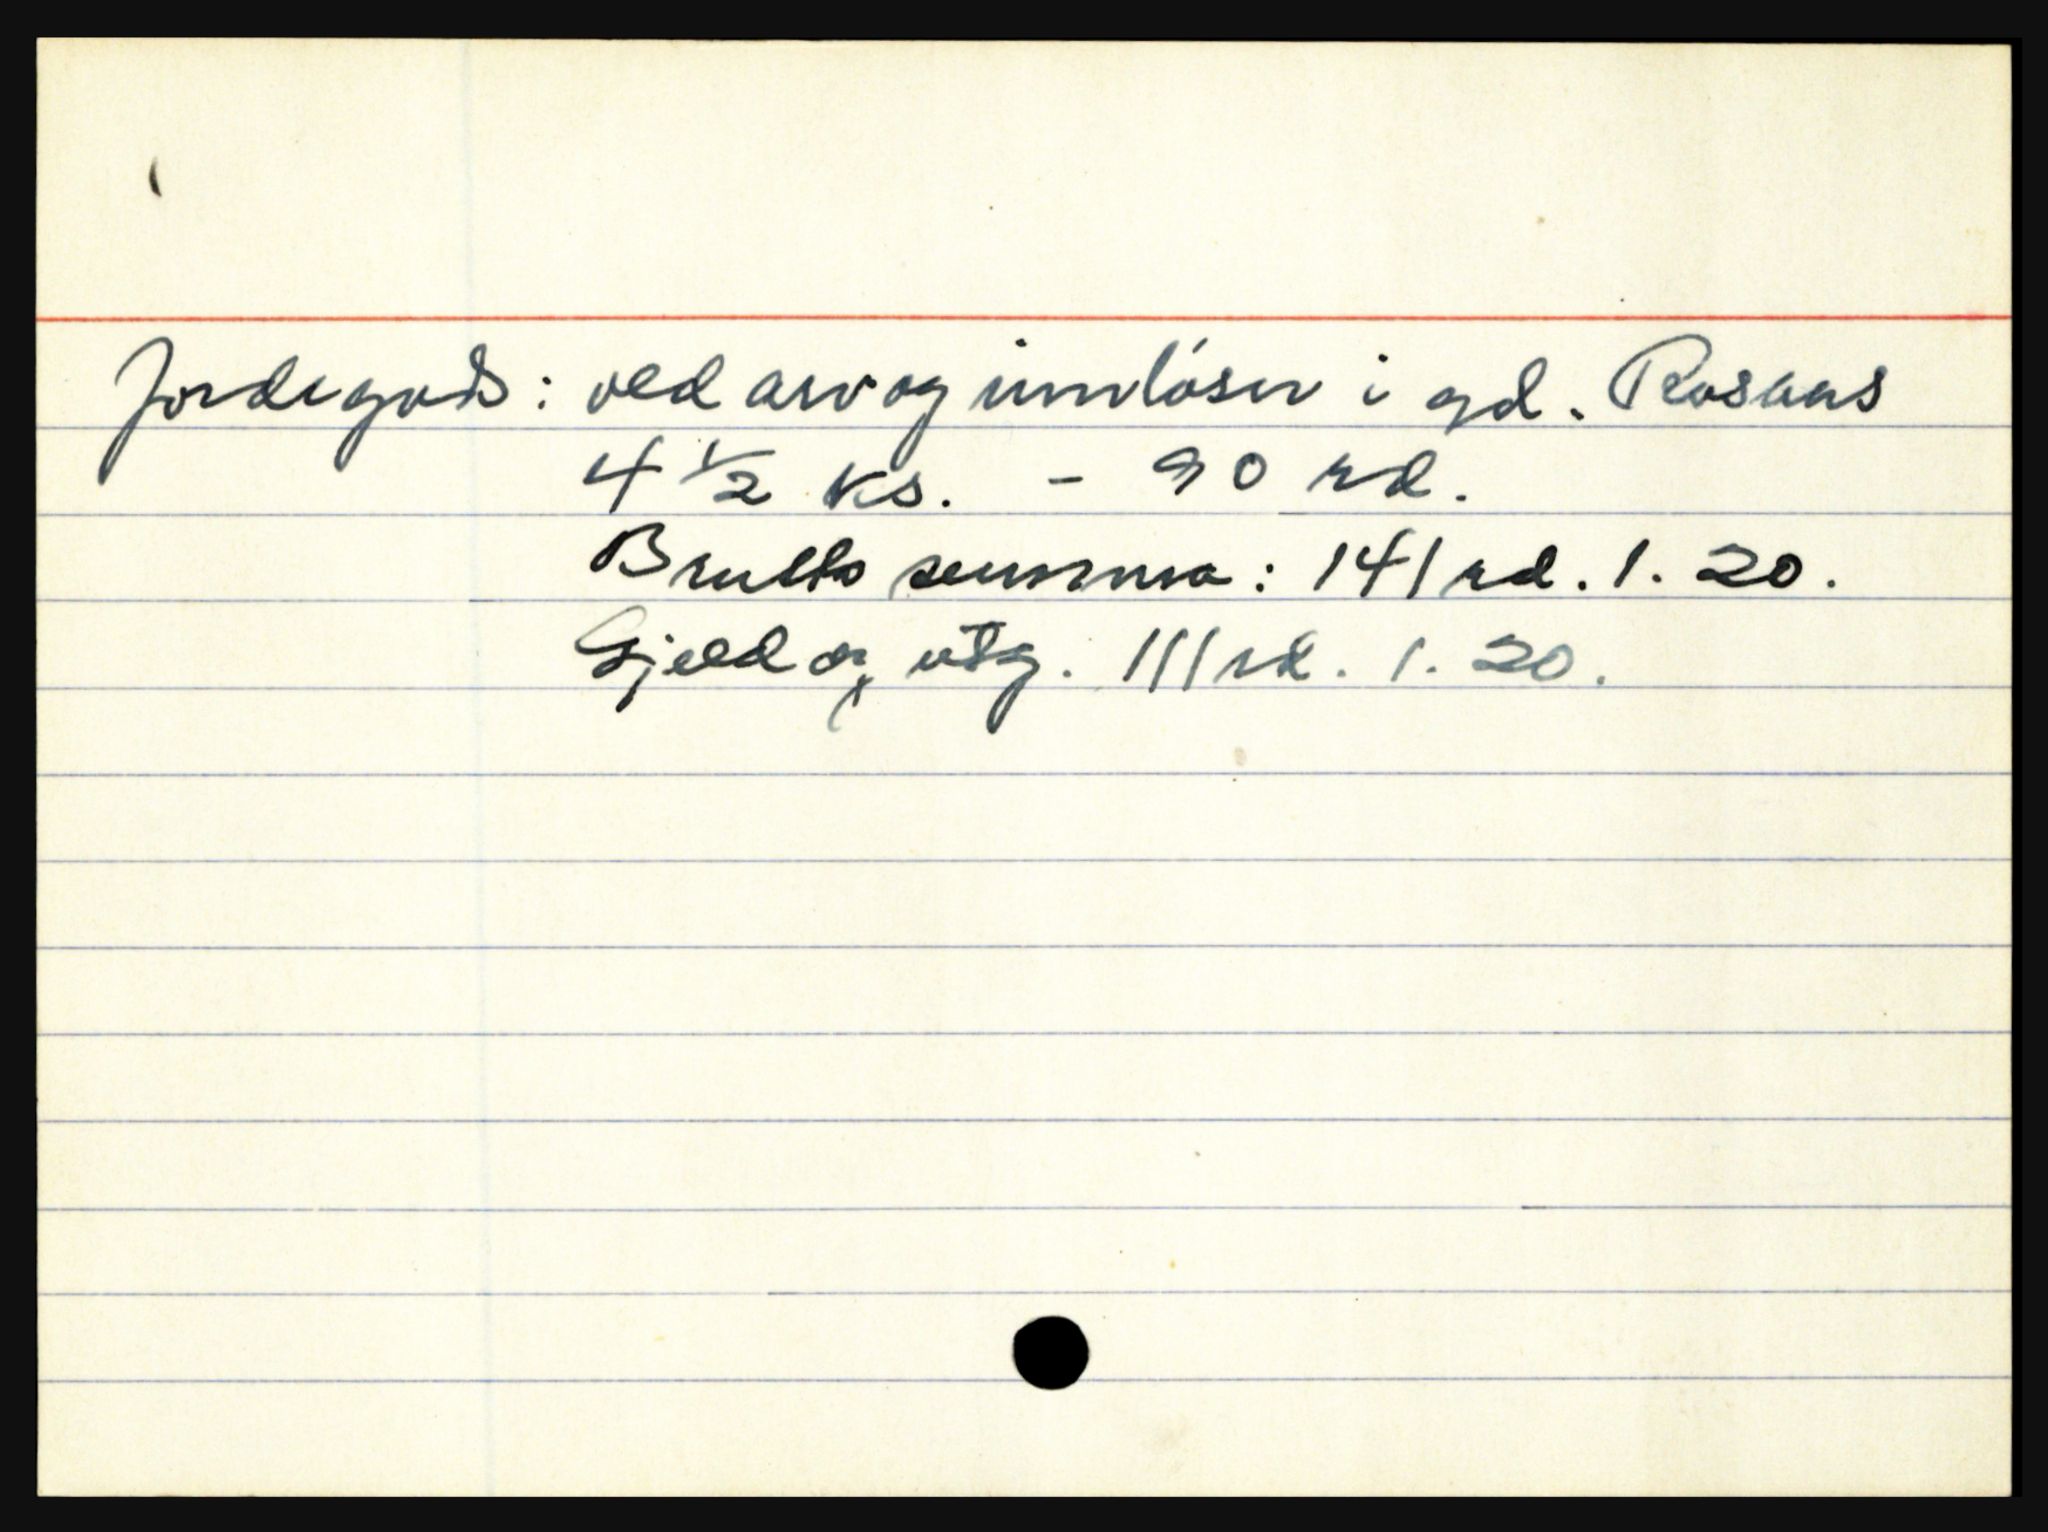 Jordegods: ved arv og innløsn i gd. Rosaas
4 ½ ks. - 90 rd.
Brutto summa: 141 rd. 1. 20.
Gjeld og utg. 111 rd. 1. 20.